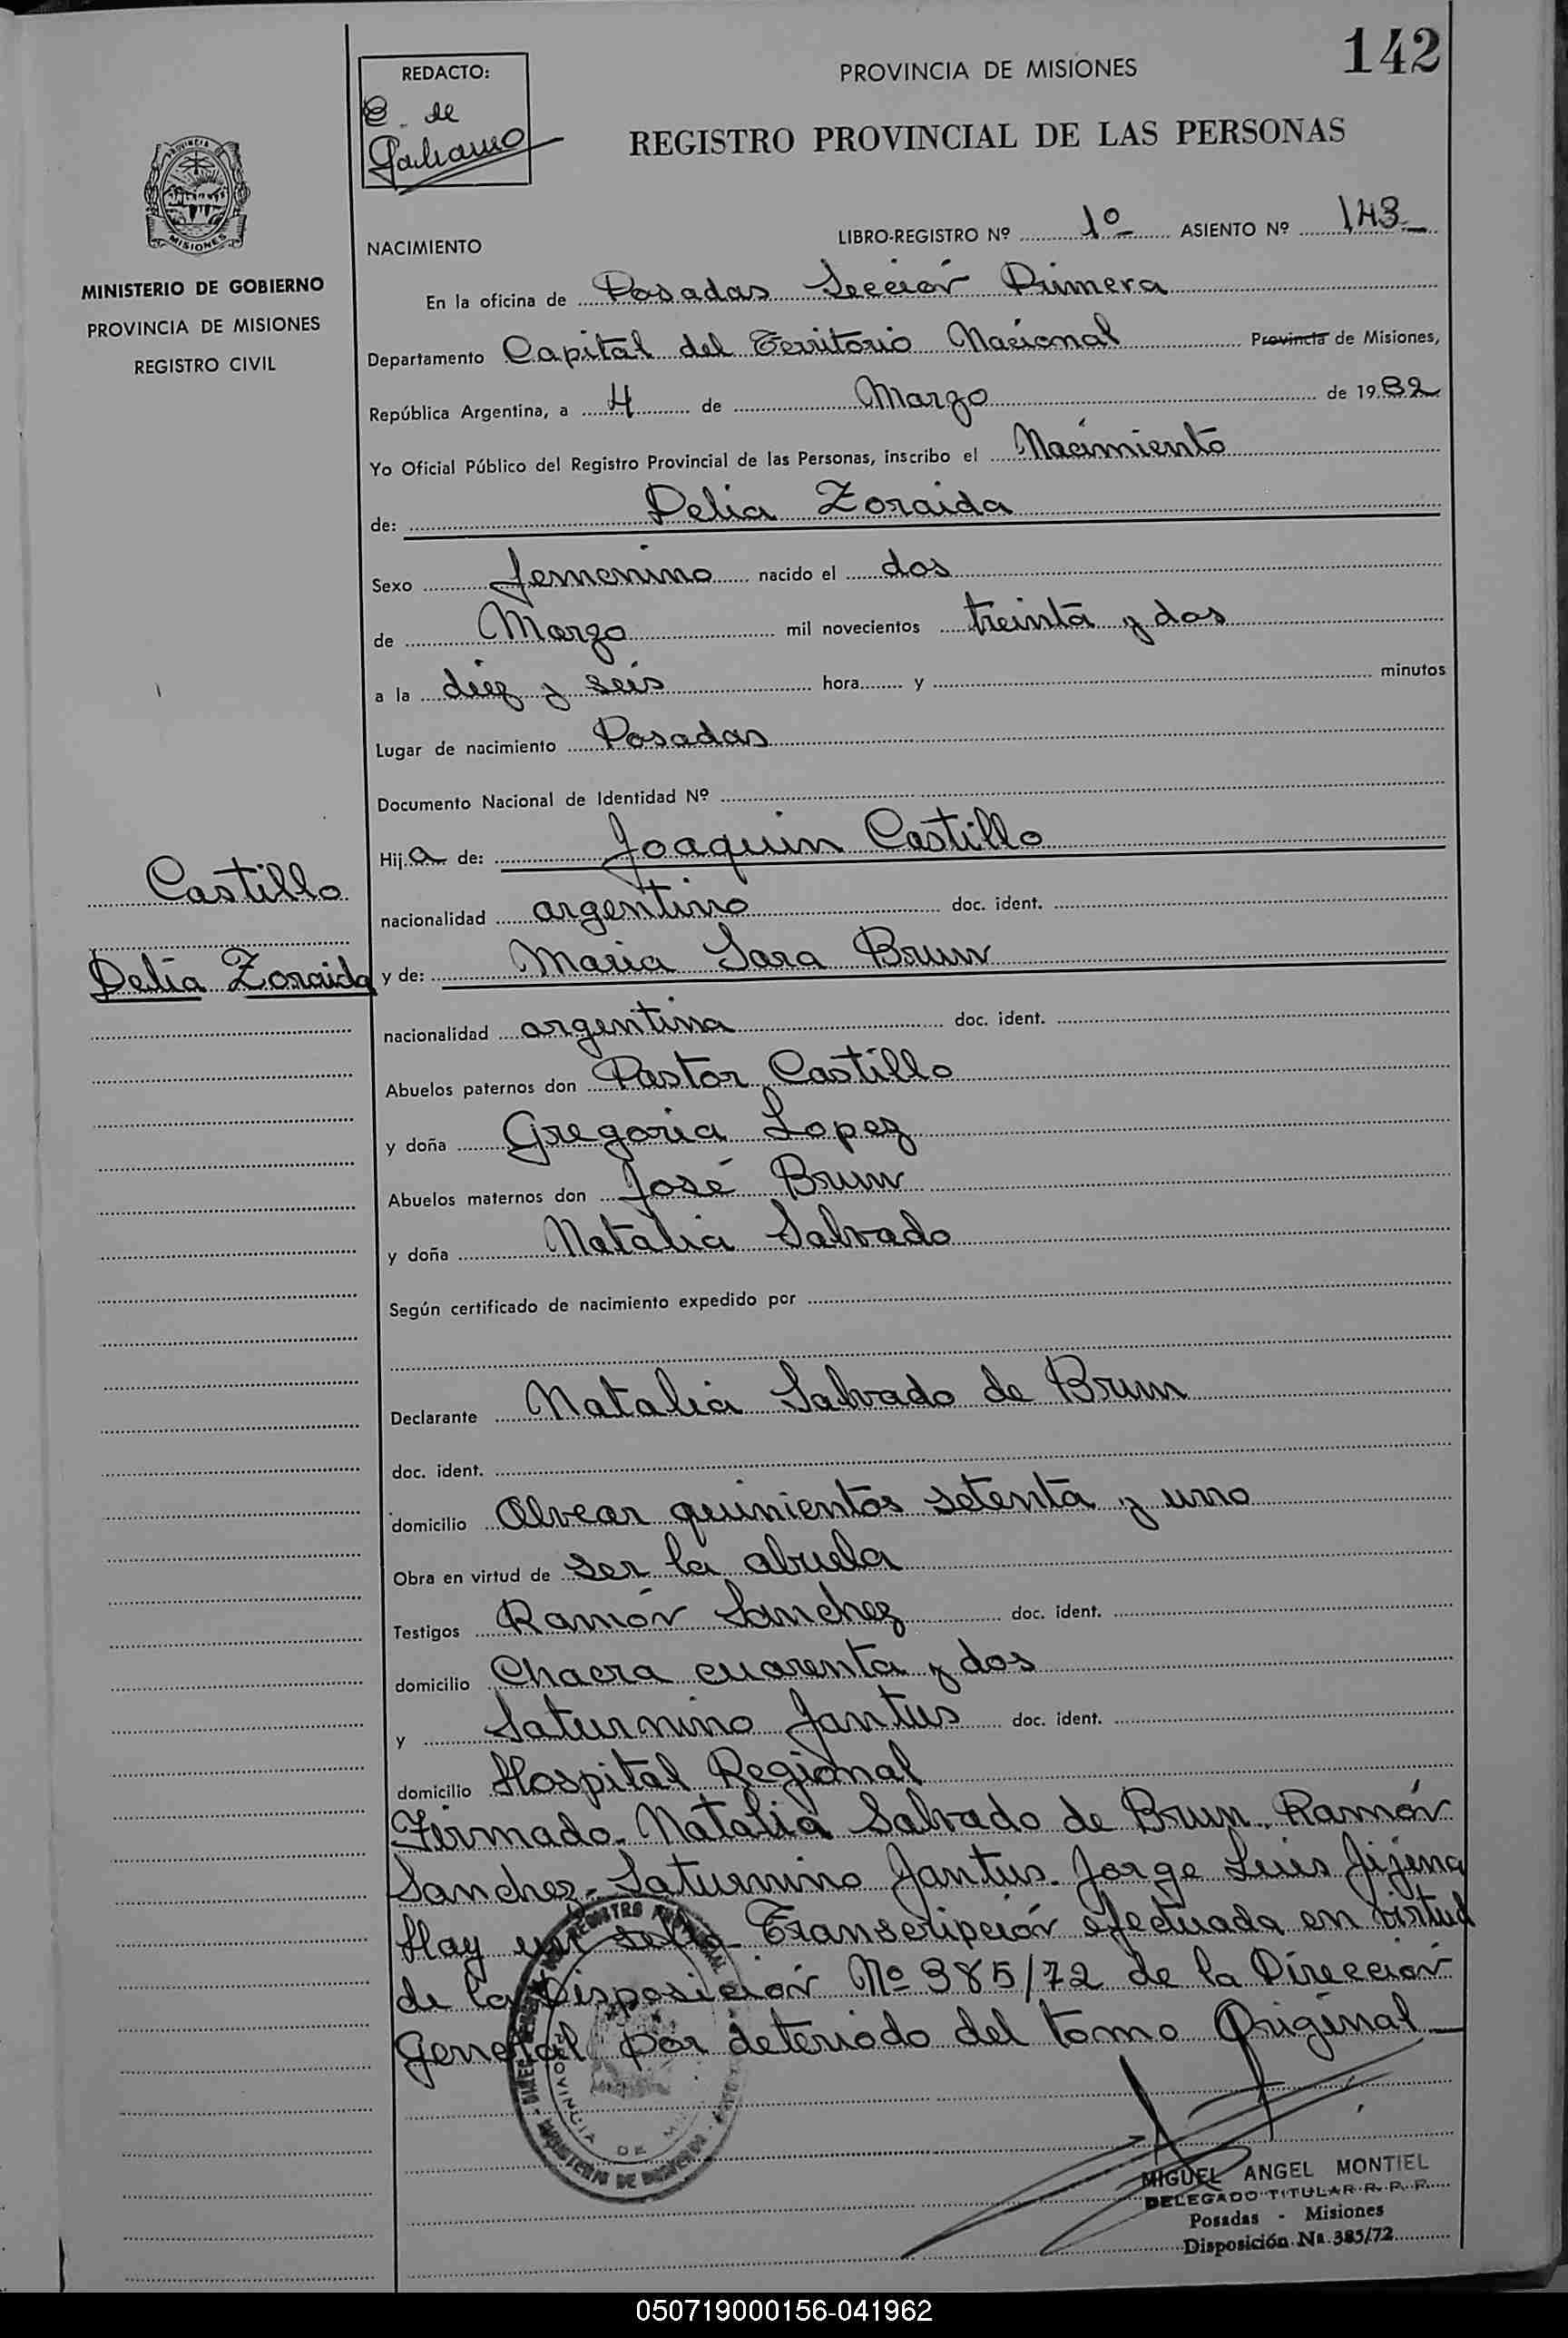 142
REDACTO:
E. de
Galiano
PROVINCIA DE MISIONES
REGISTRO PROVINCIAL DE LAS PERSONAS
MISIONES
MINISTERIO DE GOBIERNO
PROVINCIA DE MISIONES
REGISTRO CIVIL
NACIMIENTO
LIBRO-REGISTRO Nº 1º ASIENTO Nº 143
En la oficina de Posadas Sección Primera
Departamento Capital del Territorio Nacional Provincia de Misiones,
República Argentina, a 4 de Marzo de 1932
Yo Oficial Público del Registro Provincial de las Personas, inscribo el Nacimiento
de: Delia Zoraida
Sexo femenino nacido el dos
de Marzo mil novecientos treinta y dos
a la diez y seis hora y minutos
Lugar de nacimiento Posadas
Documento Nacional de Identidad Nº
Hija de: Joaquin Castillo
Castillo
nacionalidad argentino doc. ident.
Delia Zoraida
y de: Maria Sara Brun
nacionalidad argentina doc. ident.
Abuelos paternos don Pastor Castillo
y doña Gregoria Lopez
Abuelos maternos don José Brun
y doña Natalia Salvado
Según certificado de nacimiento expedido por
Declarante Natalia Salvado de Brun
doc. ident.
domicilio Alvear quinientos setenta y uno
Obra en virtud de ser la abuela
Testigos Ramón Sanchez doc. ident.
domicilio Chacra cuarenta y dos
y Saturnino Jantus doc. ident.
domicilio Hospital Regional
Firmado. Natalia Salvado de Brun. Ramón
Sanchez. Saturnino Jantus. Jorge Luis Jijena
Hay un sello. Transcripción efectuada en virtud
de la Disposición Nº 385/72 de la Dirección
General por deteriodo del tomo Original
PROVINCIA DE
MIGUEL ANGEL MONTIEL
DELEGADO TITULAR R. P. P.
Posadas - Misiones
Disposición Nº 385/72
050719000156-041962